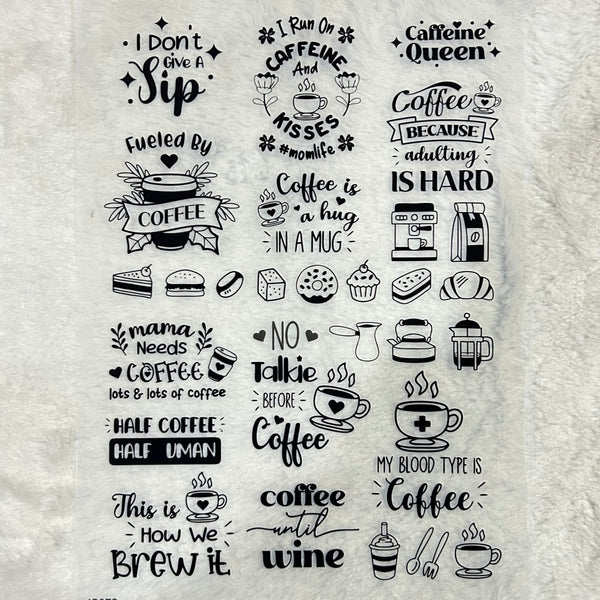 I Don't
Give A
Sip
I Run On
CAFFEINE
And
KISSES
#momlife
Caffeine
Queen
Fueled By
COFFEE
Coffee is
a hug
IN A MUG
Coffee
BECAUSE
adulting
IS HARD
mama
Needs
COFFEE
lots & lots of coffee
NO
Talkie
BEFORE
Coffee
HALF COFFEE
HALF UMAN
MY BLOOD TYPE IS
Coffee
This is
How We
Brew it
coffee
until
wine